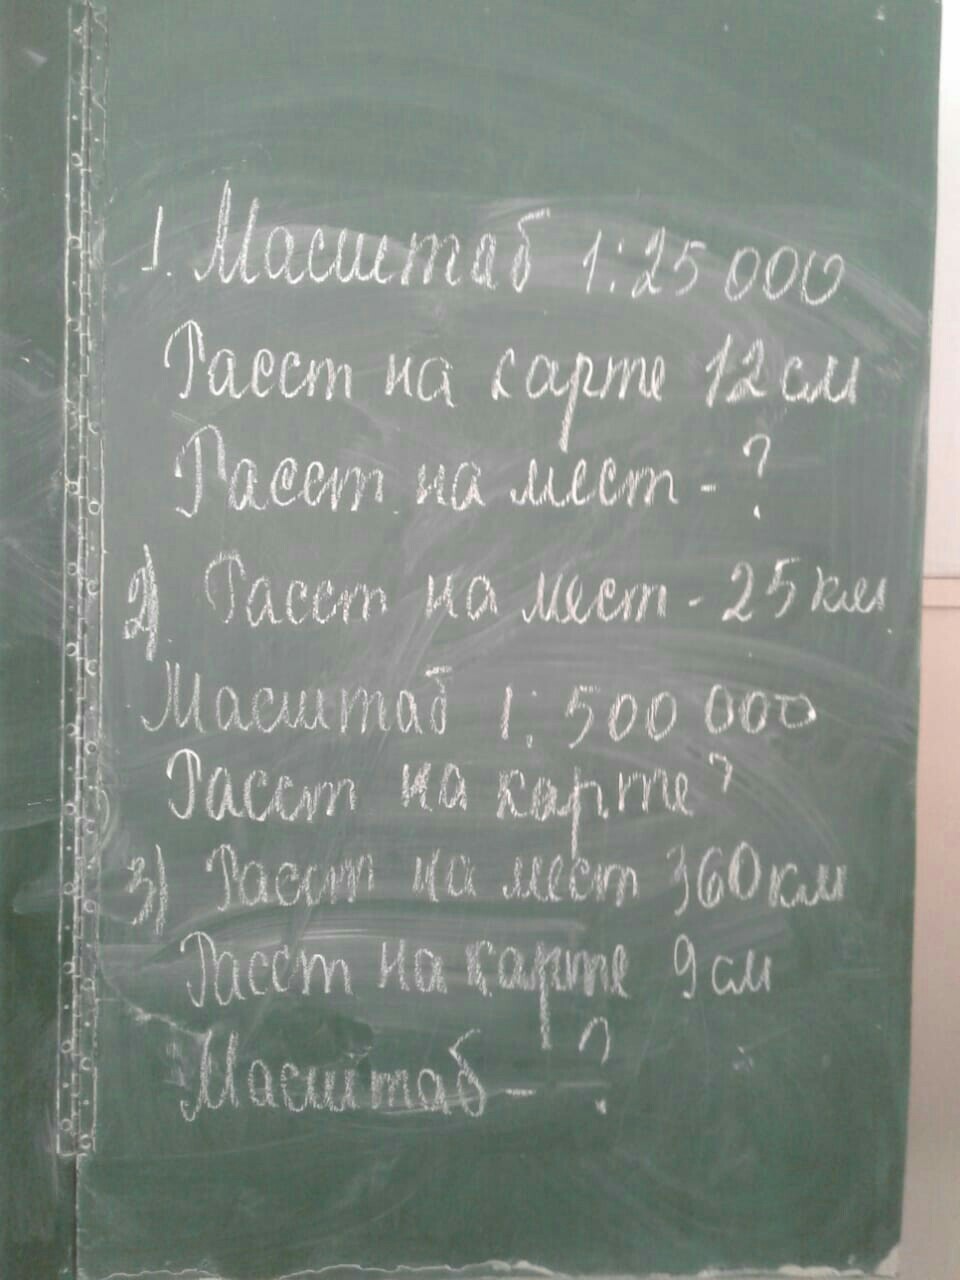 1. Масштаб 1:25 000
Расст на карте 12 см
Расст на мест - ?
2) Расст на мест - 25 км
Масштаб 1:500 000
Расст на карте?
3) Расст на мест 360 км
Расст на карте 9 см
Масштаб - ?